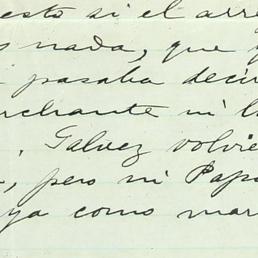 esto si el arre
s nada, que y
i pasaba decir
nchante ni l
. Galvez volvie
, pero mi Papá
ya como mar